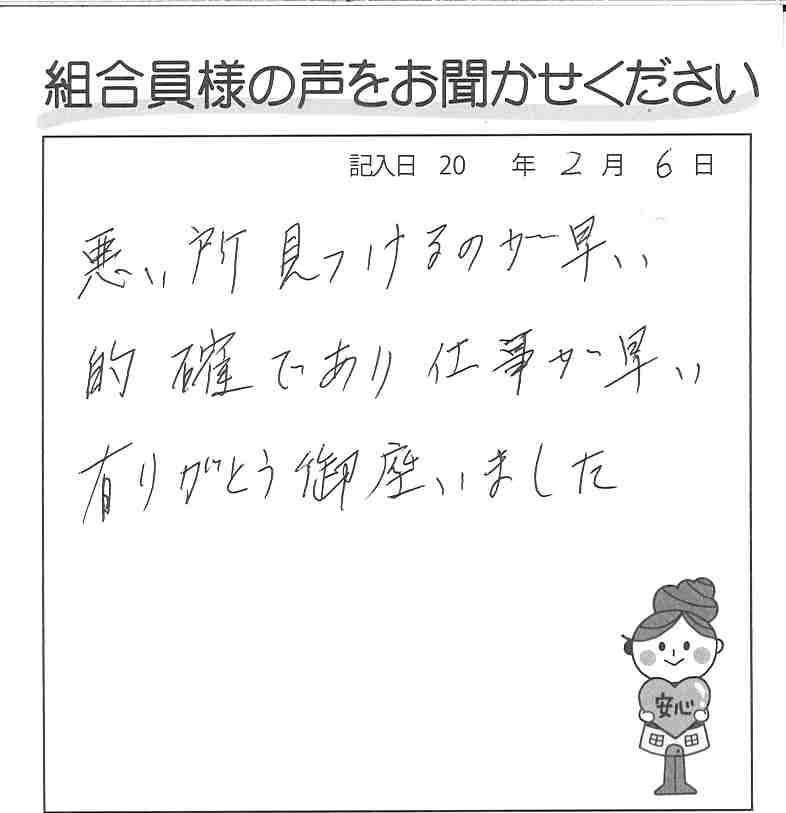 組合員様の声をお聞かせください
記入日 20 年 2 月 6 日
悪い所見つけるのが早い
的確であり仕事が早い
有りがとう御座いました
安心